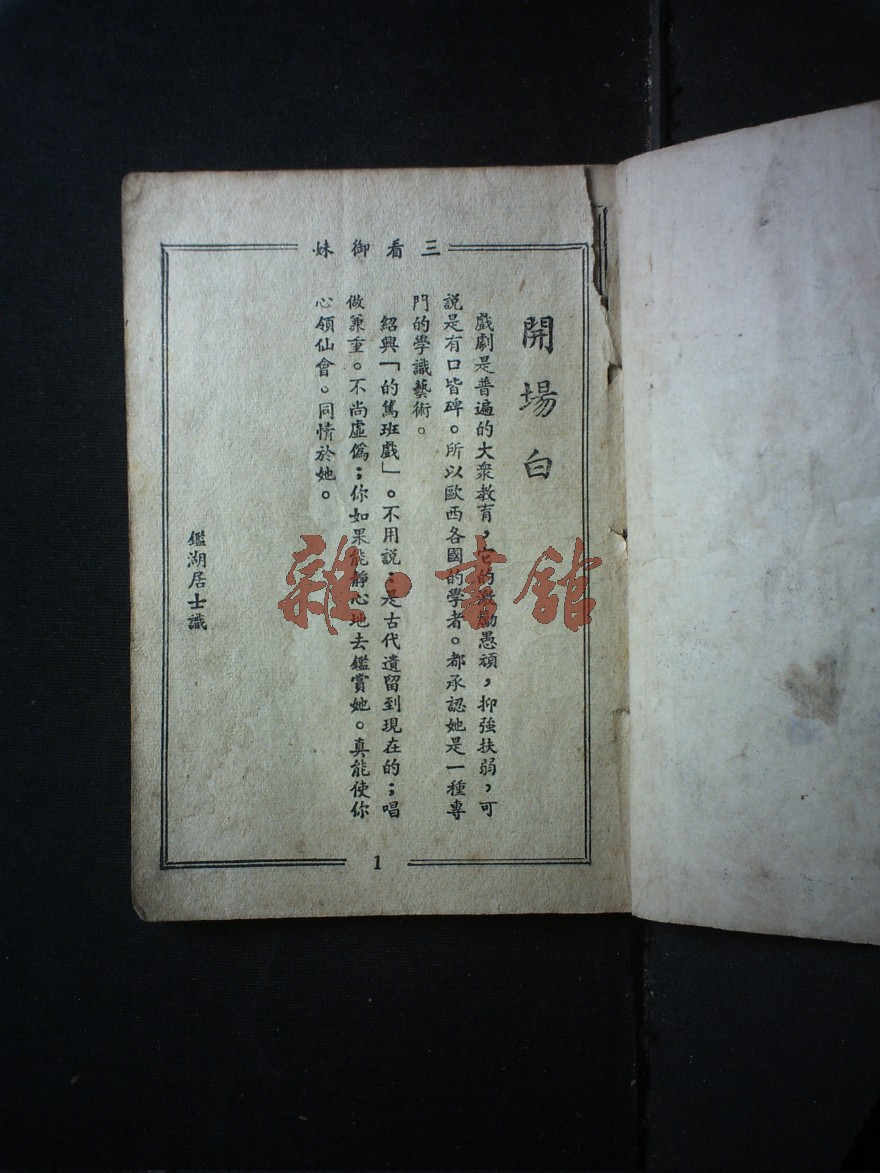 三看御妹
開場白
戲劇是普遍的大衆教育，它的激勵愚頑，抑強扶弱，可
說是有口皆碑。所以歐西各國的學者。都承認她是一種專
門的學識藝術。
紹興「的篤班戲」。不用說；是古代遺留到現在的；唱
做兼重。不尚虛僞；你如果能靜心地去鑑賞她。真能使你
心領仙會。同情於她。
鑑湖居士識
1
雜·書館